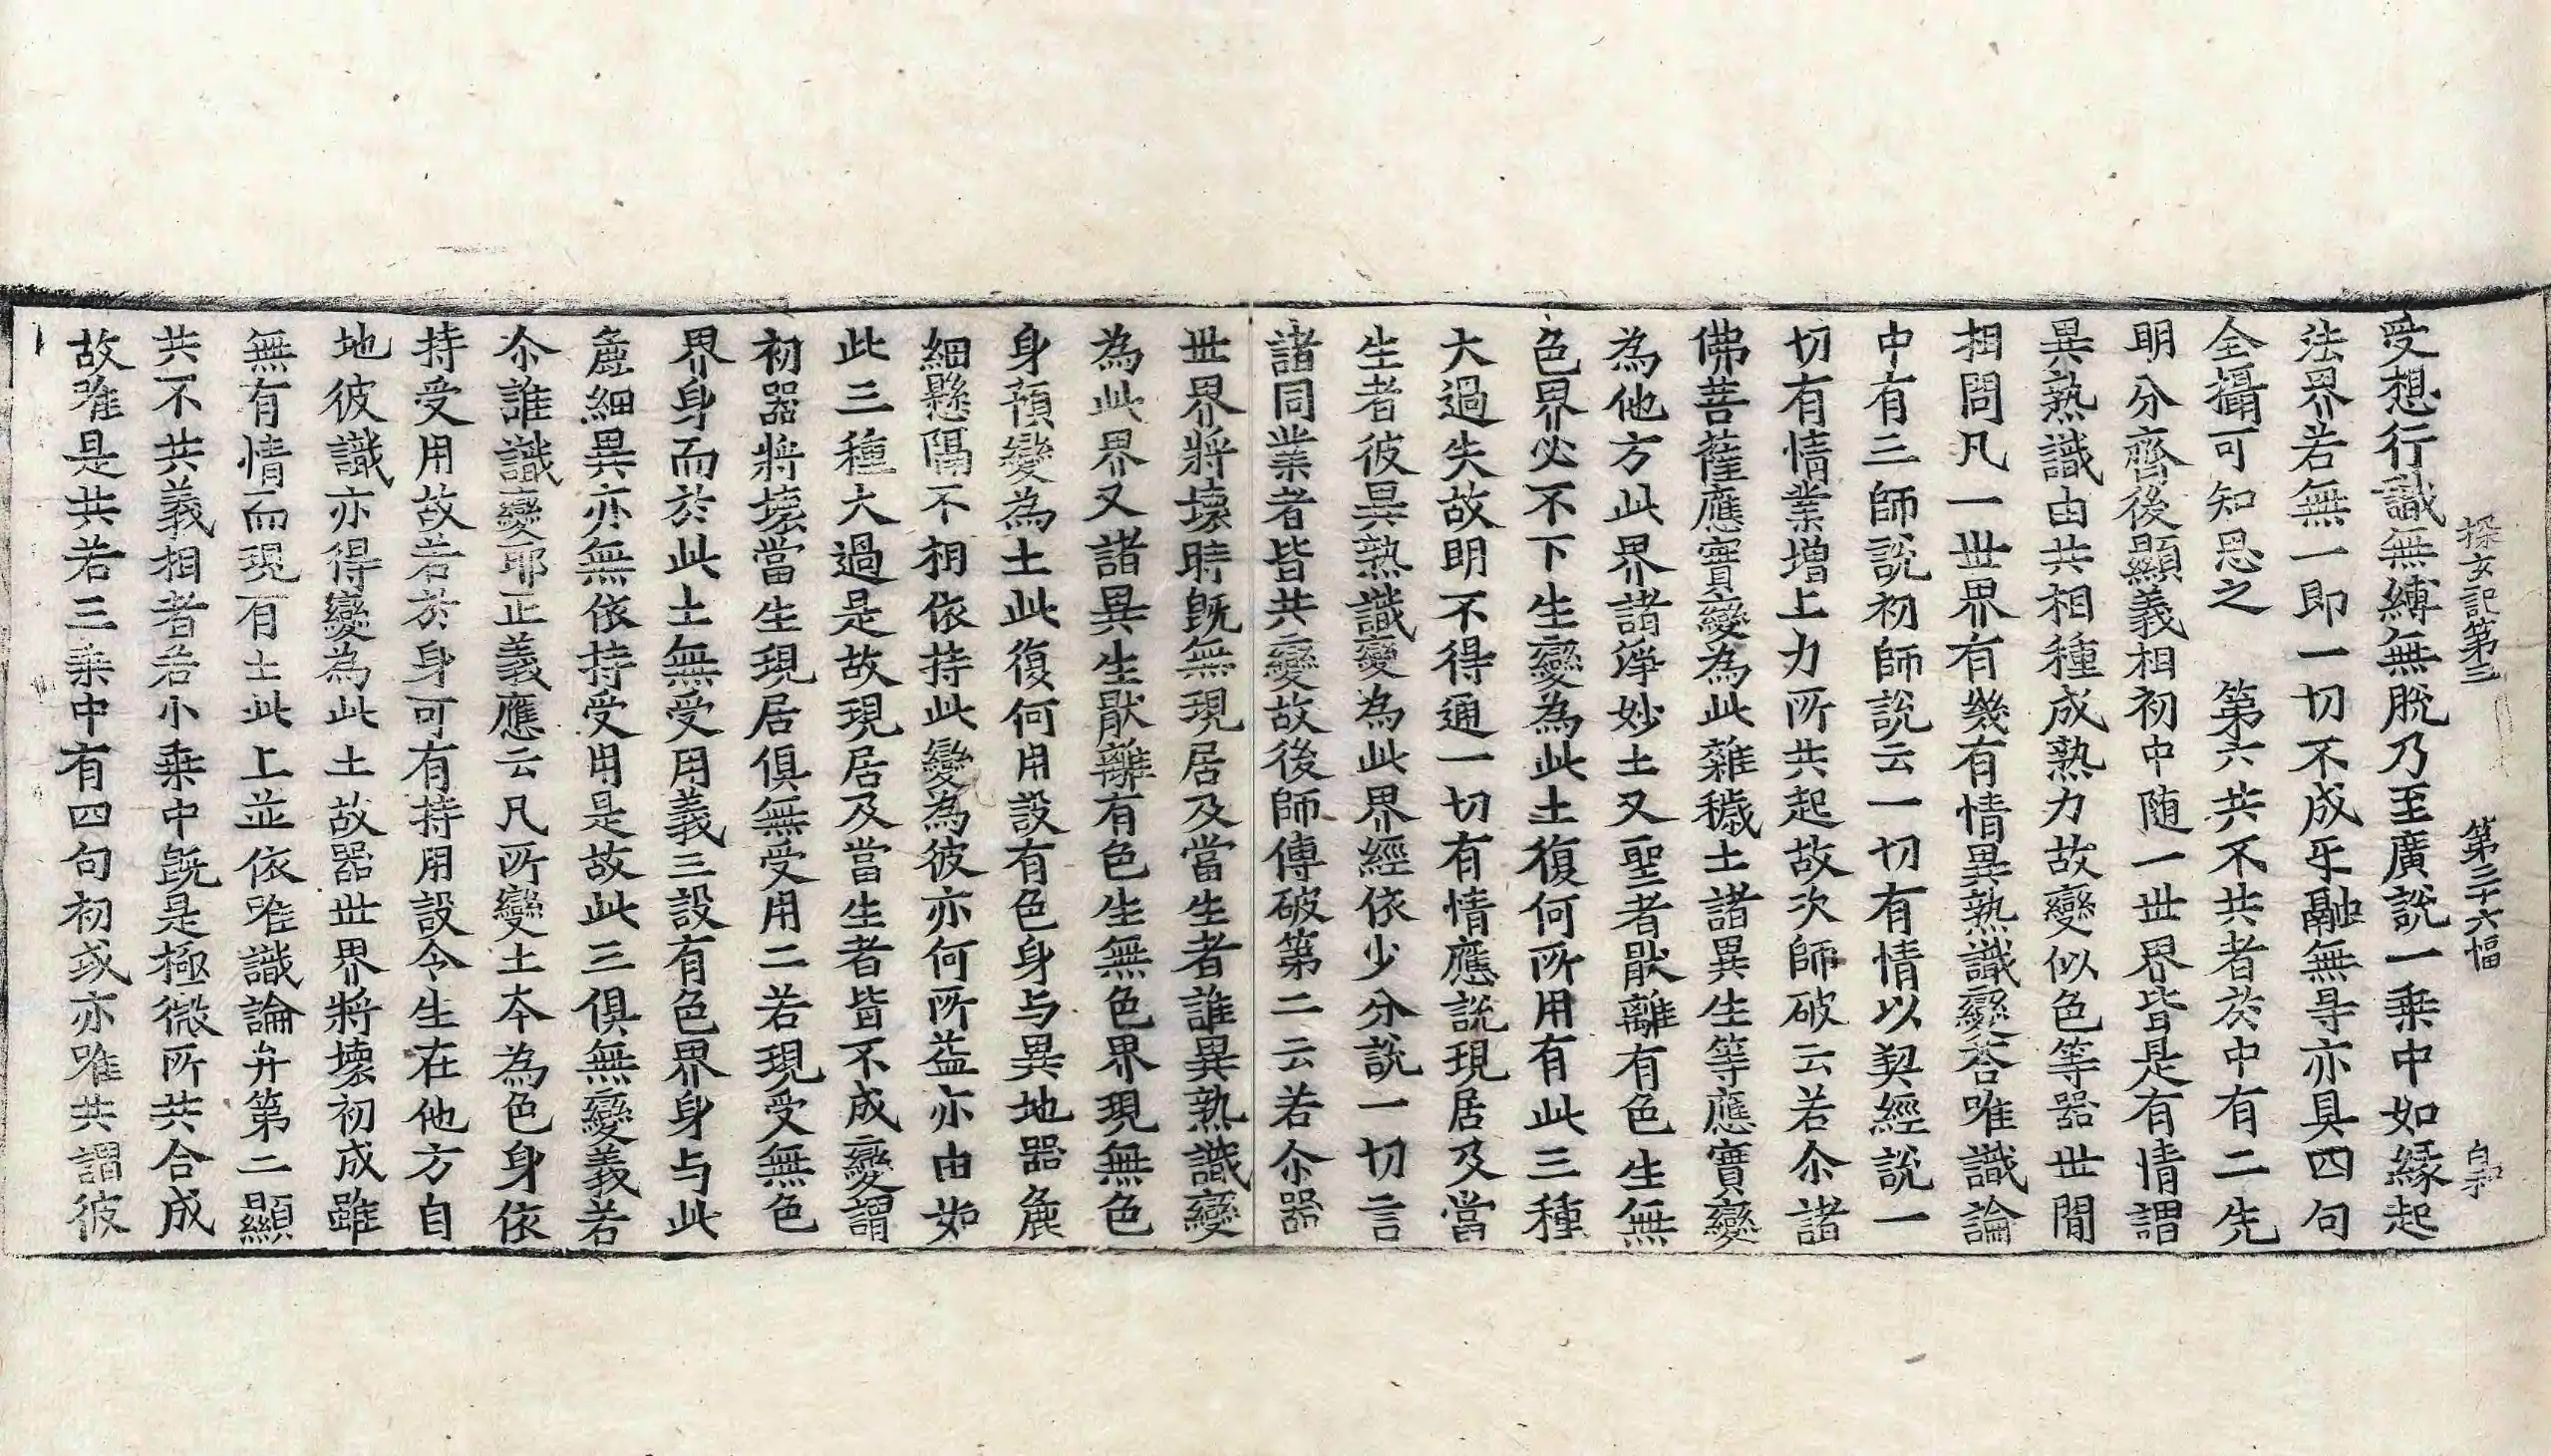 探玄記第三 第三十六幅 自和
受想行識無縛無脫乃至廣說一乗中如緣起
法界若無一即一切不成乐融無㝵亦具四句
全攝可知思之 第六共不共者於中有二先
明分齊後顯義相初中随一世界皆是有情謂
異熟識由共相種成熟力故變似色等器世間
相問凡一世界有幾有情異熟識變荅唯識論
中有三師說初師說云一切有情以契經說一
切有情業增上力所共起故次師破云若尒諸
佛菩薩應實變為此雜穢土諸異生等應實變
為他方此界諸淨妙土又聖者猒離有色生無
色界必不下生變為此土復何所用有此三種
大過失故明不得通一切有情應說現居及當
生者彼異熟識變為此界經依少分說一切言
諸同業者皆共變故後師傳破第二云若尒器
世界將壞時旣無現居及當生者誰異熟識變
為此界又諸異生猒離有色生無色界現無色
身預變為土此復何用設有色身与異地器麁
細懸隔不相依持此變為彼亦何所益亦由如
此三種大過是故現居及當生者皆不成變謂
初器將壞當生現居俱無受用二若現受無色
界身而於此土無受用義三設有色界身与此
麁細異亦無依持受用是故此三俱無變義若
尒誰識變耶正義應云凡所變土夲為色身依
持受用故若於身可有持用設令生在他方自
地彼識亦得變為此土故器世界將壞初成雖
無有情而現有土此上並依唯識論弁第二顯
共不共義相者若小乗中旣是極微所共合成
故唯是共若三乗中有四句初或亦唯共謂彼